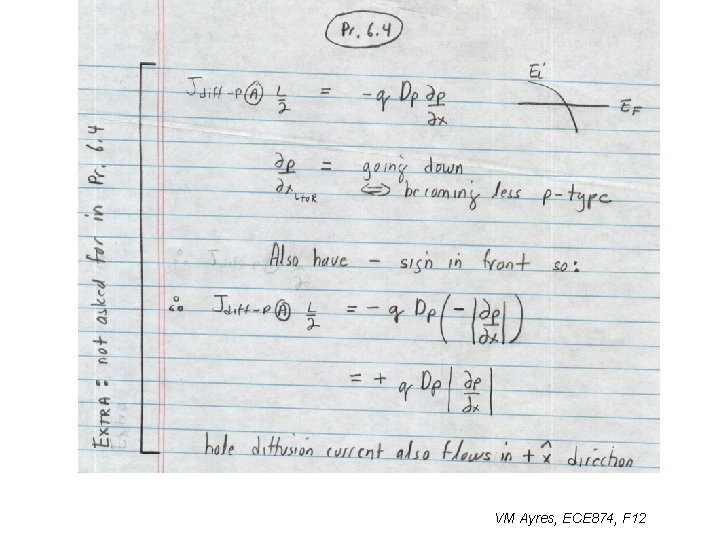 Pr. 6.4
EXTRA: not asked for in Pr. 6.4
J diff-p @ L/2 = -q Dp ∂p/∂x
Ei
EF
∂p/∂x LtoR = going down
⇔ becoming less p-type
Also have - sign in front so:
∴ J diff-p @ L/2 = - q Dp (-|∂p/∂x|)
= + q Dp |∂p/∂x|
hole diffusion current also flows in + x̂ direction
VM Ayres, ECE874, F12